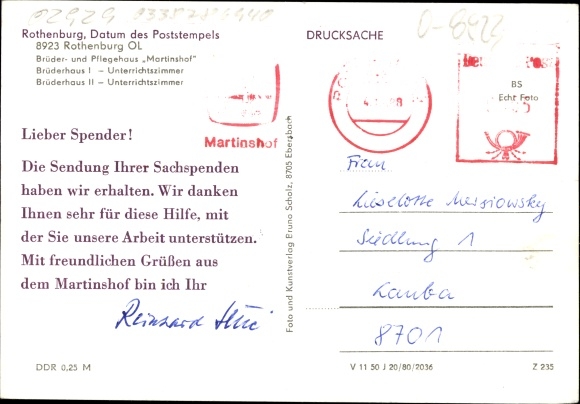 02929 03387816940
D-8429
Rothenburg, Datum des Poststempels
8923 Rothenburg OL
Brüder- und Pflegehaus „Martinshof"
Brüderhaus I – Unterrichtszimmer
Brüderhaus II – Unterrichtszimmer
DRUCKSACHE
Martinshof
BS
Echt Foto
Lieber Spender!
Die Sendung Ihrer Sachspenden
haben wir erhalten. Wir danken
Ihnen sehr für diese Hilfe, mit
der Sie unsere Arbeit unterstützen.
Mit freundlichen Grüßen aus
dem Martinshof bin ich Ihr
Reinhard
DDR 0,25 M
Foto und Kunstverlag Bruno Scholz, 8705 Ebersbach
Frau
Lieselotte Mersiowsky
Siedlung 1
Lauba
8701
V 11 50 J 20/80/2036
Z 235